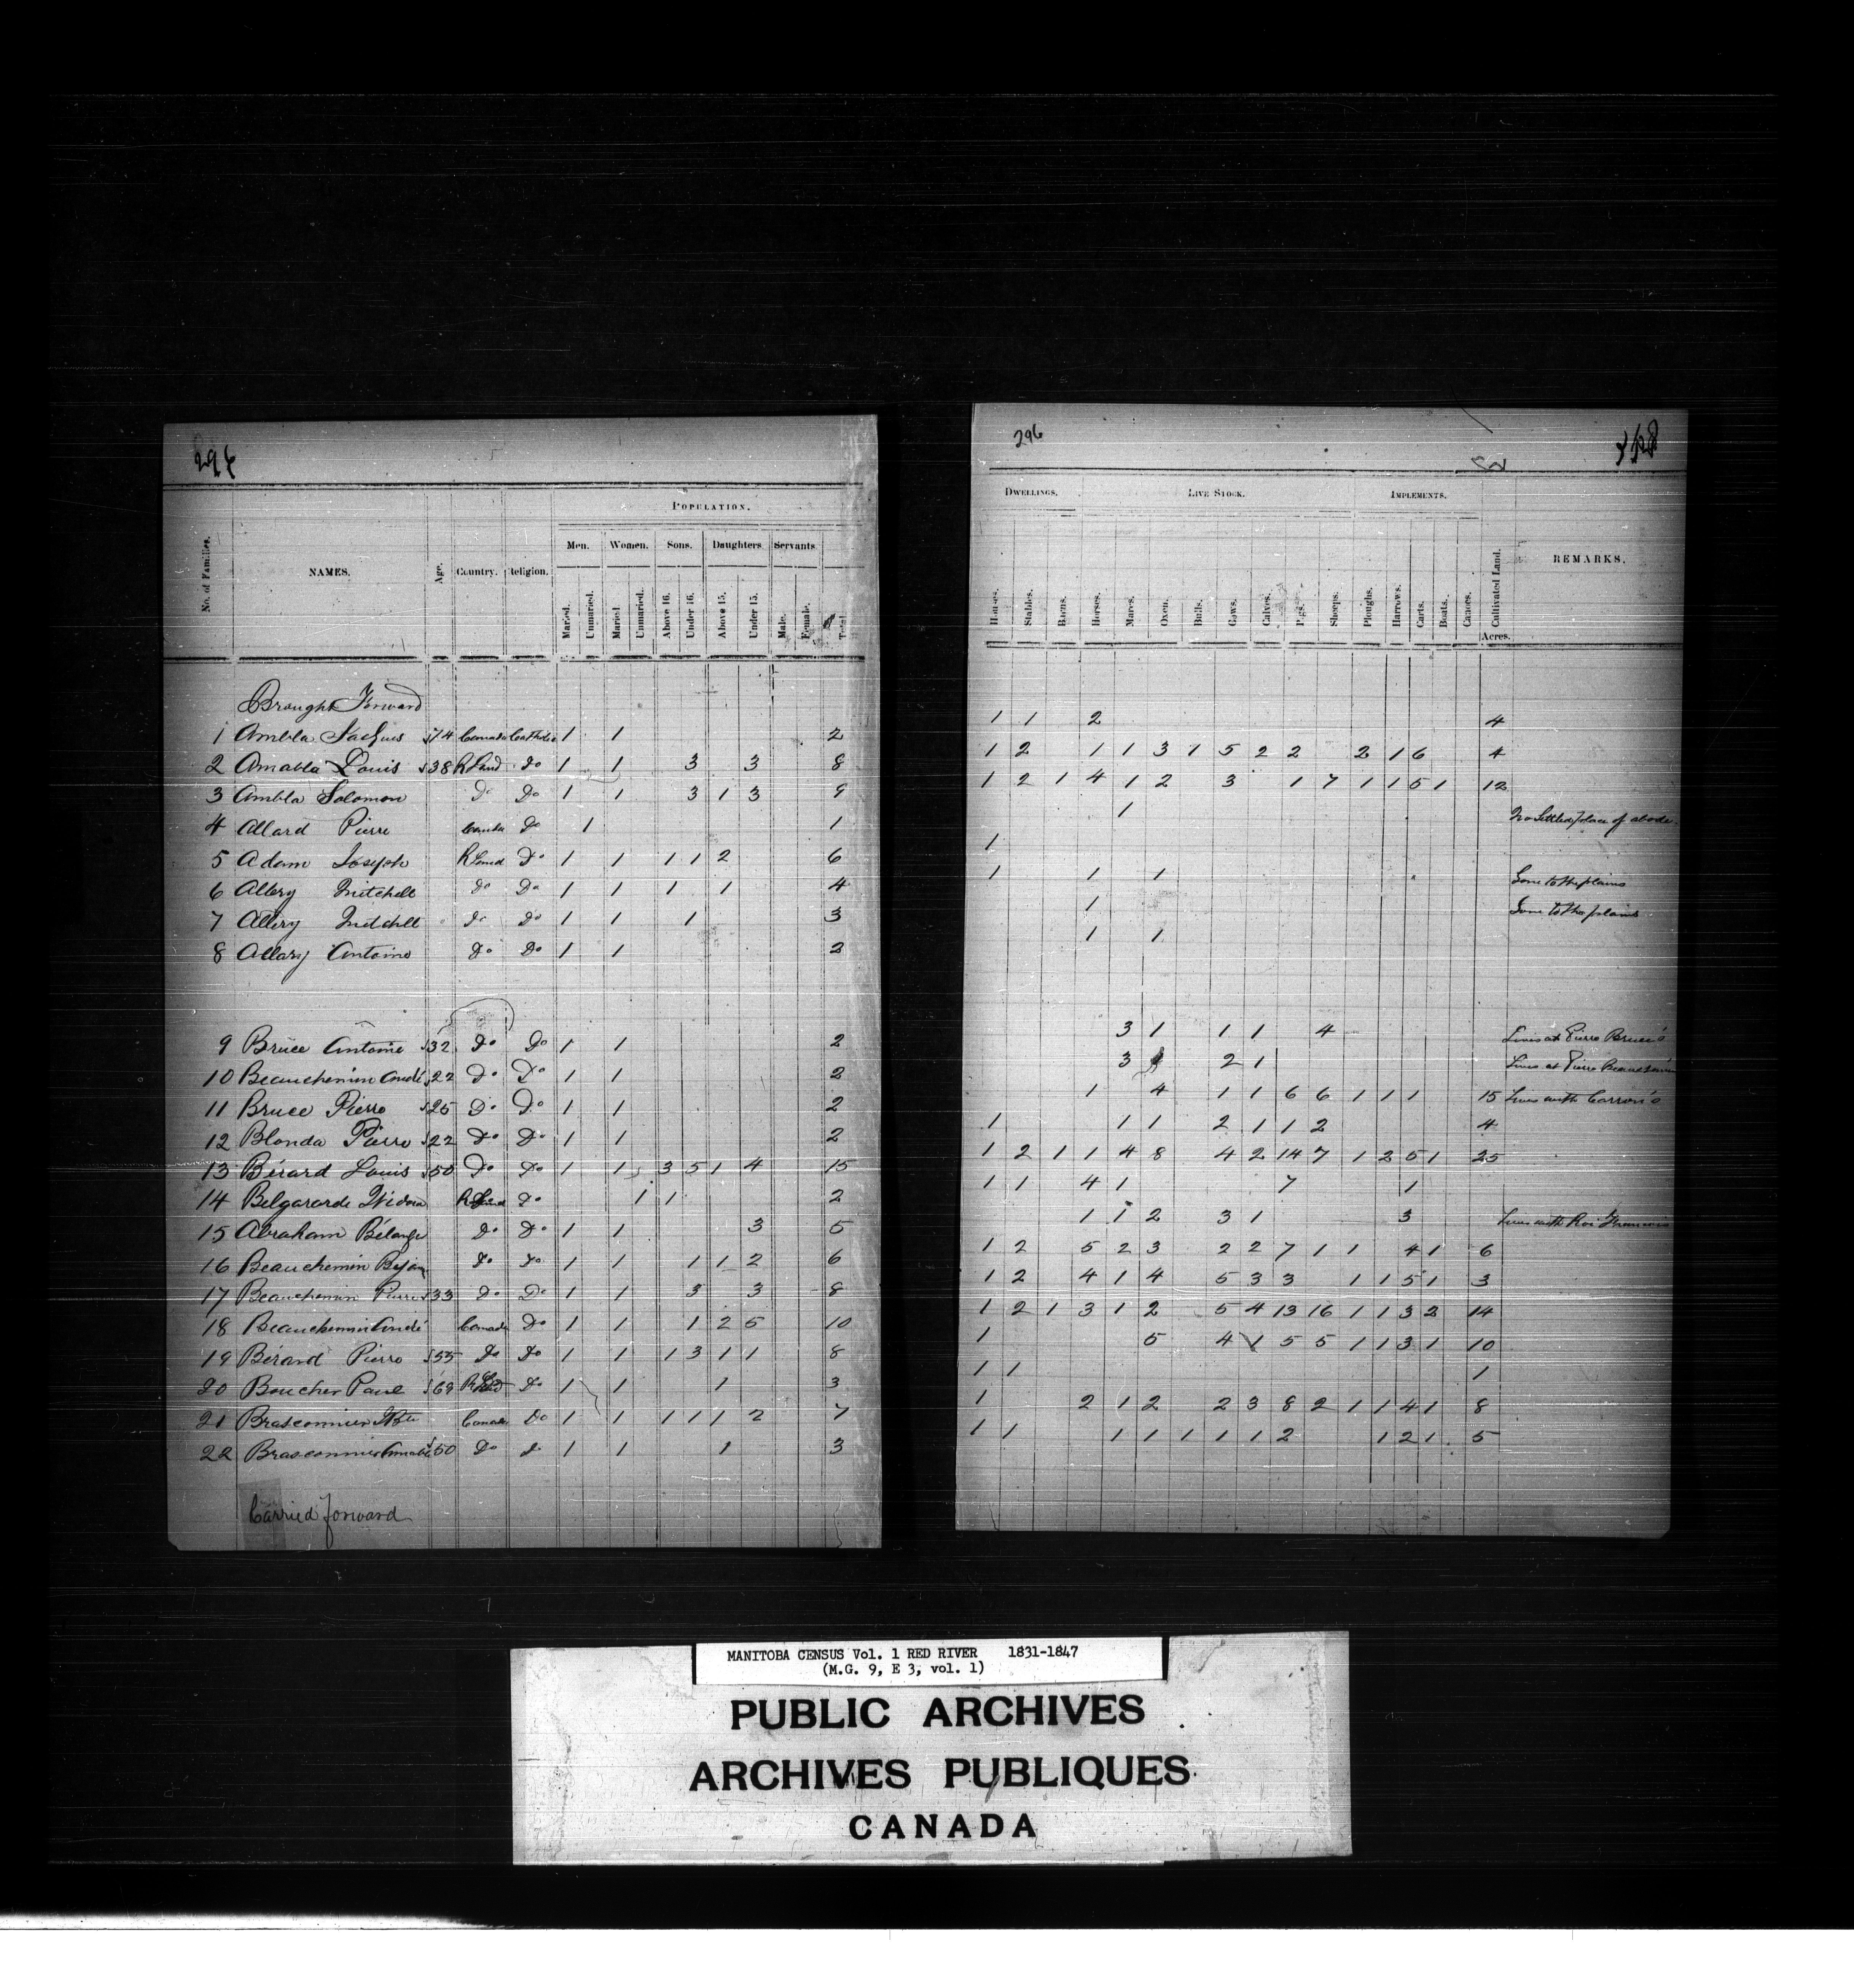 296
POPULATION.
Men. Women. Sons. Daughters Servants
No. of Families. NAMES. Age. Country. Religion. Married. Unmarried. Married Unmarried. Above 16. Under 16. Above 15. Under 15. Male. Female. Total
Brought Forward
1 Ambla 74 Canada Catholic 1 1 2
2 Amabla Louis 38 R Land do 1 1 3 3 8
3 Ambla Solomon Do Do 1 1 3 1 3 9
4 Allard Pierre Canada Do 1 1
5 Adam Joseph R Land Do 1 1 1 1 2 6
6 Allery Mitchell Do Do 1 1 1 1 4
7 Allery Mitchell Do Do 1 1 1 3
8 Allary Antoine Do Do 1 1 2
9 Bruce Antoine 32 Do Do 1 1 2
10 Beauchemin André 22 Do Do 1 1 2
11 Bruce Pierre 25 Do Do 1 1 2
12 Blonda Pierre 22 Do Do 1 1 2
13 Bérard Louis 50 Do Do 1 1 3 5 1 4 15
14 Belgararde Widow R Land Do 1 1 2
15 Abraham Bélange Do Do 1 1 3 5
16 Beauchemin Do Do 1 1 1 1 2 6
17 Beauchemin Pierre 33 Do Do 1 1 3 3 8
18 Beauchemin André Canada Do 1 1 1 2 5 10
19 Bérard Pierre 55 Do Do 1 1 1 3 1 1 8
20 Boucher Paul 69 Do 1 1 1 3
21 Brasconnier Canada Do 1 1 1 1 1 2 7
22 Brasconnier Amable 50 Do Do 1 1 1 3
Carried forward
296
DWELLINGS. LIVE STOCK. IMPLEMENTS.
Houses. Stables. Barns. Horses. Mares. Oxen. Bulls. Cows. Calves. Pigs. Sheeps. Ploughs. Harrows. Carts. Boats. Canoes. Cultivated Land. REMARKS.
Acres.
1 1 2 4
1 2 1 1 3 1 5 2 2 2 1 6 4
1 2 1 4 1 2 3 1 7 1 1 5 1 12
1 No Settled place of abode.
1
1 1 1 Gone to the plains
1 Gone to the plains
1 1
3 1 1 1 4 Lives at Pierre Bruce's
3 2 1 Lives at Pierre
1 4 1 1 6 6 1 1 1 15 Lives with
1 1 1 2 1 1 2 4
1 2 1 1 4 8 4 2 14 7 1 2 5 1 25
1 1 4 1 7 1
1 1 2 3 1 3 Lives with
1 2 5 2 3 2 2 7 1 1 4 1 6
1 2 4 1 4 5 3 3 1 1 5 1 3
1 2 1 3 1 2 5 4 13 16 1 1 3 2 14
1 5 4 1 5 5 1 1 3 1 10
1 1 1
1 2 1 2 2 3 8 2 1 1 4 1 8
1 1 1 1 1 1 1 2 1 2 1 5
MANITOBA CENSUS Vol. 1 RED RIVER 1831-1847
(M.G. 9, E 3, vol. 1)
PUBLIC ARCHIVES
ARCHIVES PUBLIQUES
CANADA